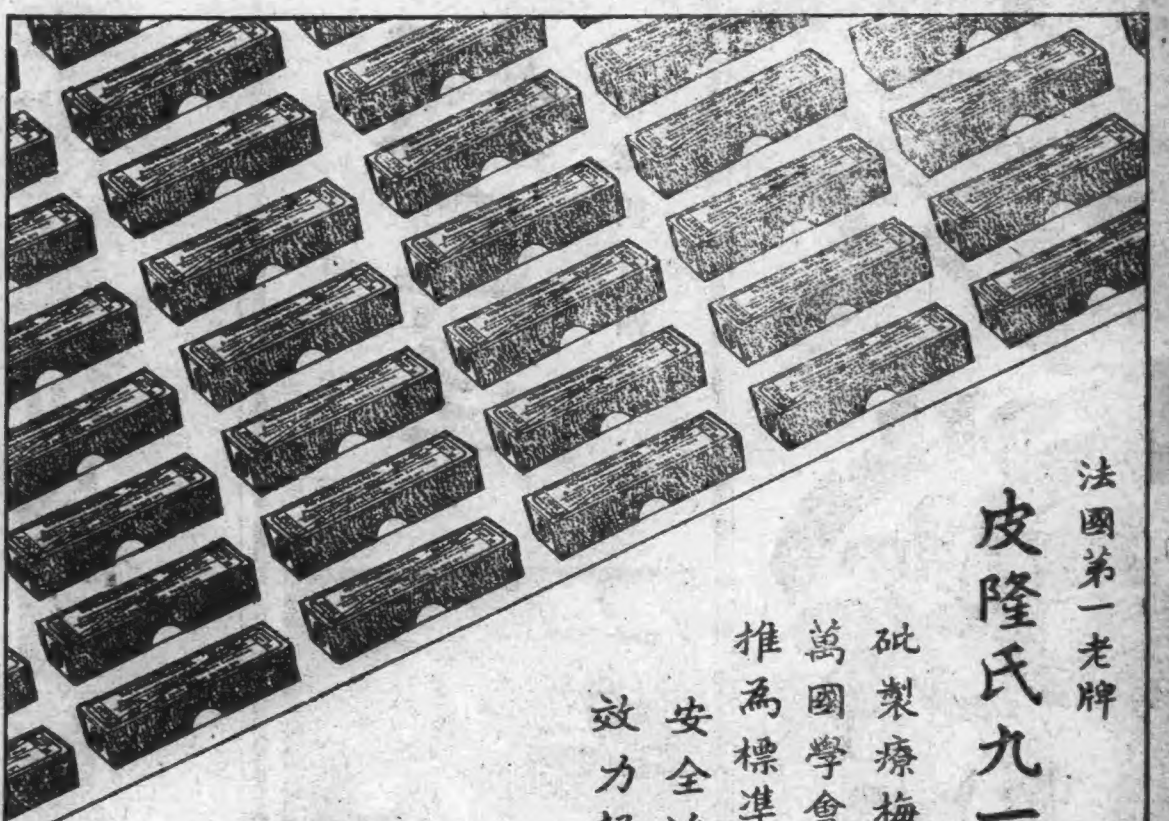 法國第一老牌
皮隆氏九一
砒製療梅
萬國學會
推為標準
安全
效力